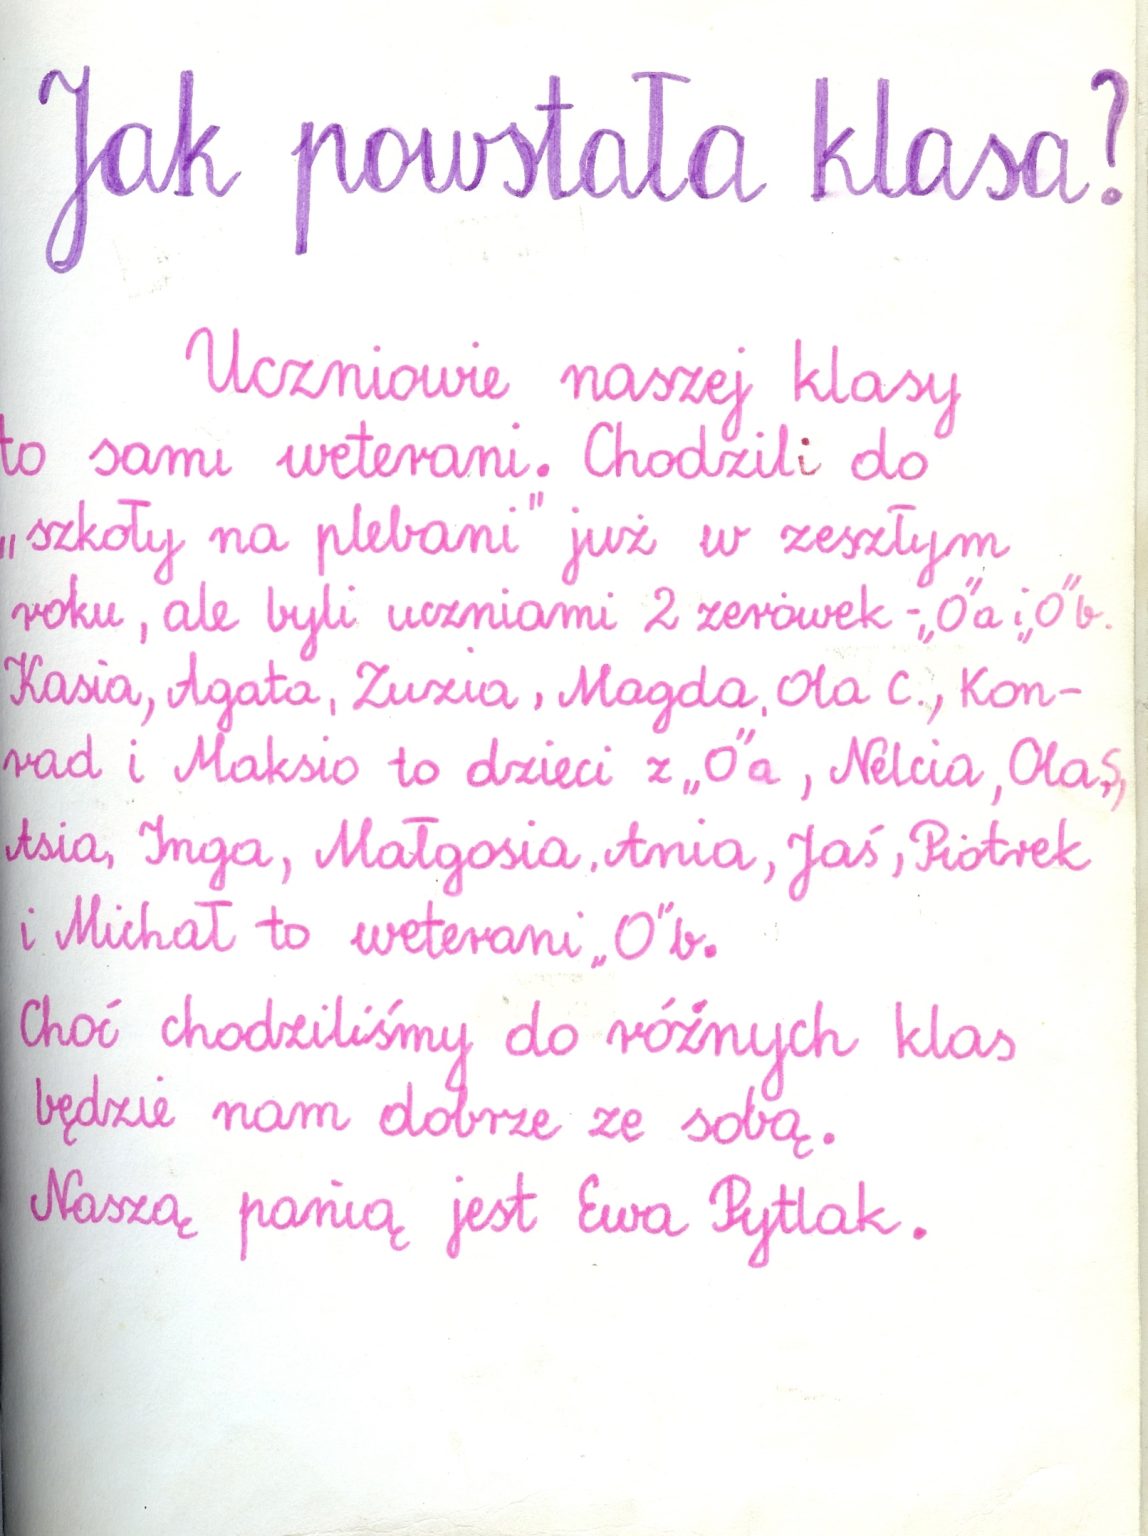 Jak powstała klasa?
Uczniowie naszej klasy
to sami weterani. Chodzili do
„szkoły na plebani" już w zeszłym
roku, ale byli uczniami 2 zerówek - „0"a i „0"b.
Kasia, Agata, Zuzia, Magda, Ola C., Kon-
rad i Maksio to dzieci z „0"a, Nelcia, Ola S.,
Asia, Inga, Małgosia, Ania, Jaś, Piotrek
i Michał to weterani „0"b.
Choć chodziliśmy do różnych klas
będzie nam dobrze ze sobą.
Naszą panią jest Ewa Pytlak.